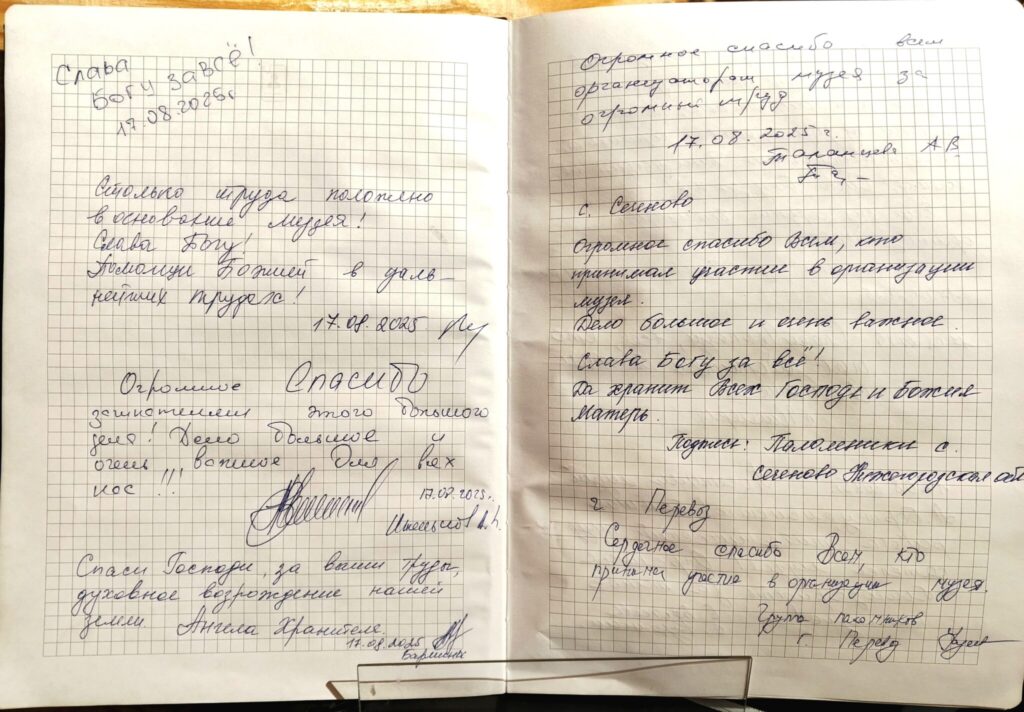 Слава
Богу за всё!
17.08.2025г
Столько труда положено
в основание музея!
Слава Богу!
Помощи Божией в даль-
нейших трудах!
17.08.2025
Огромное Спасибо
этого большого
дела! Дело большое и
очень важное для всех
нас!!!
17.08.2025г.
Спаси Господи, за ваши труды,
духовное возрождение нашей
земли. Ангела Хранителя.
17.08.2025
Огромное спасибо всем
организаторам музея за
огромный труд
17.08.2025г.
Таланцева АВ
с. Сеченово
Огромное спасибо Всем, кто
принимал участие в организации
музея.
Дело большое и очень важное.
Слава Богу за всё!
Да хранит Всех Господь и Божия
Матерь.
Подпись: Паломники с.
Сеченово Нижегородская обл
г Перевоз
Сердечное спасибо Всем, кто
принимал участие в организации музея.
Группа паломников
г. Перевоз